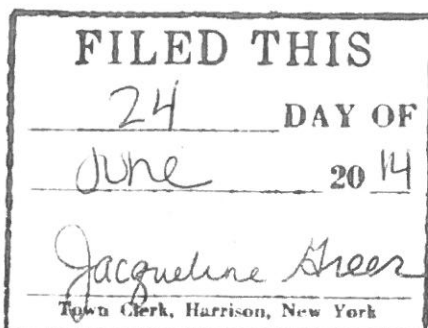 FILED THIS
24 DAY OF
June 20 14
Jacqueline Greer
Town Clerk, Harrison, New York